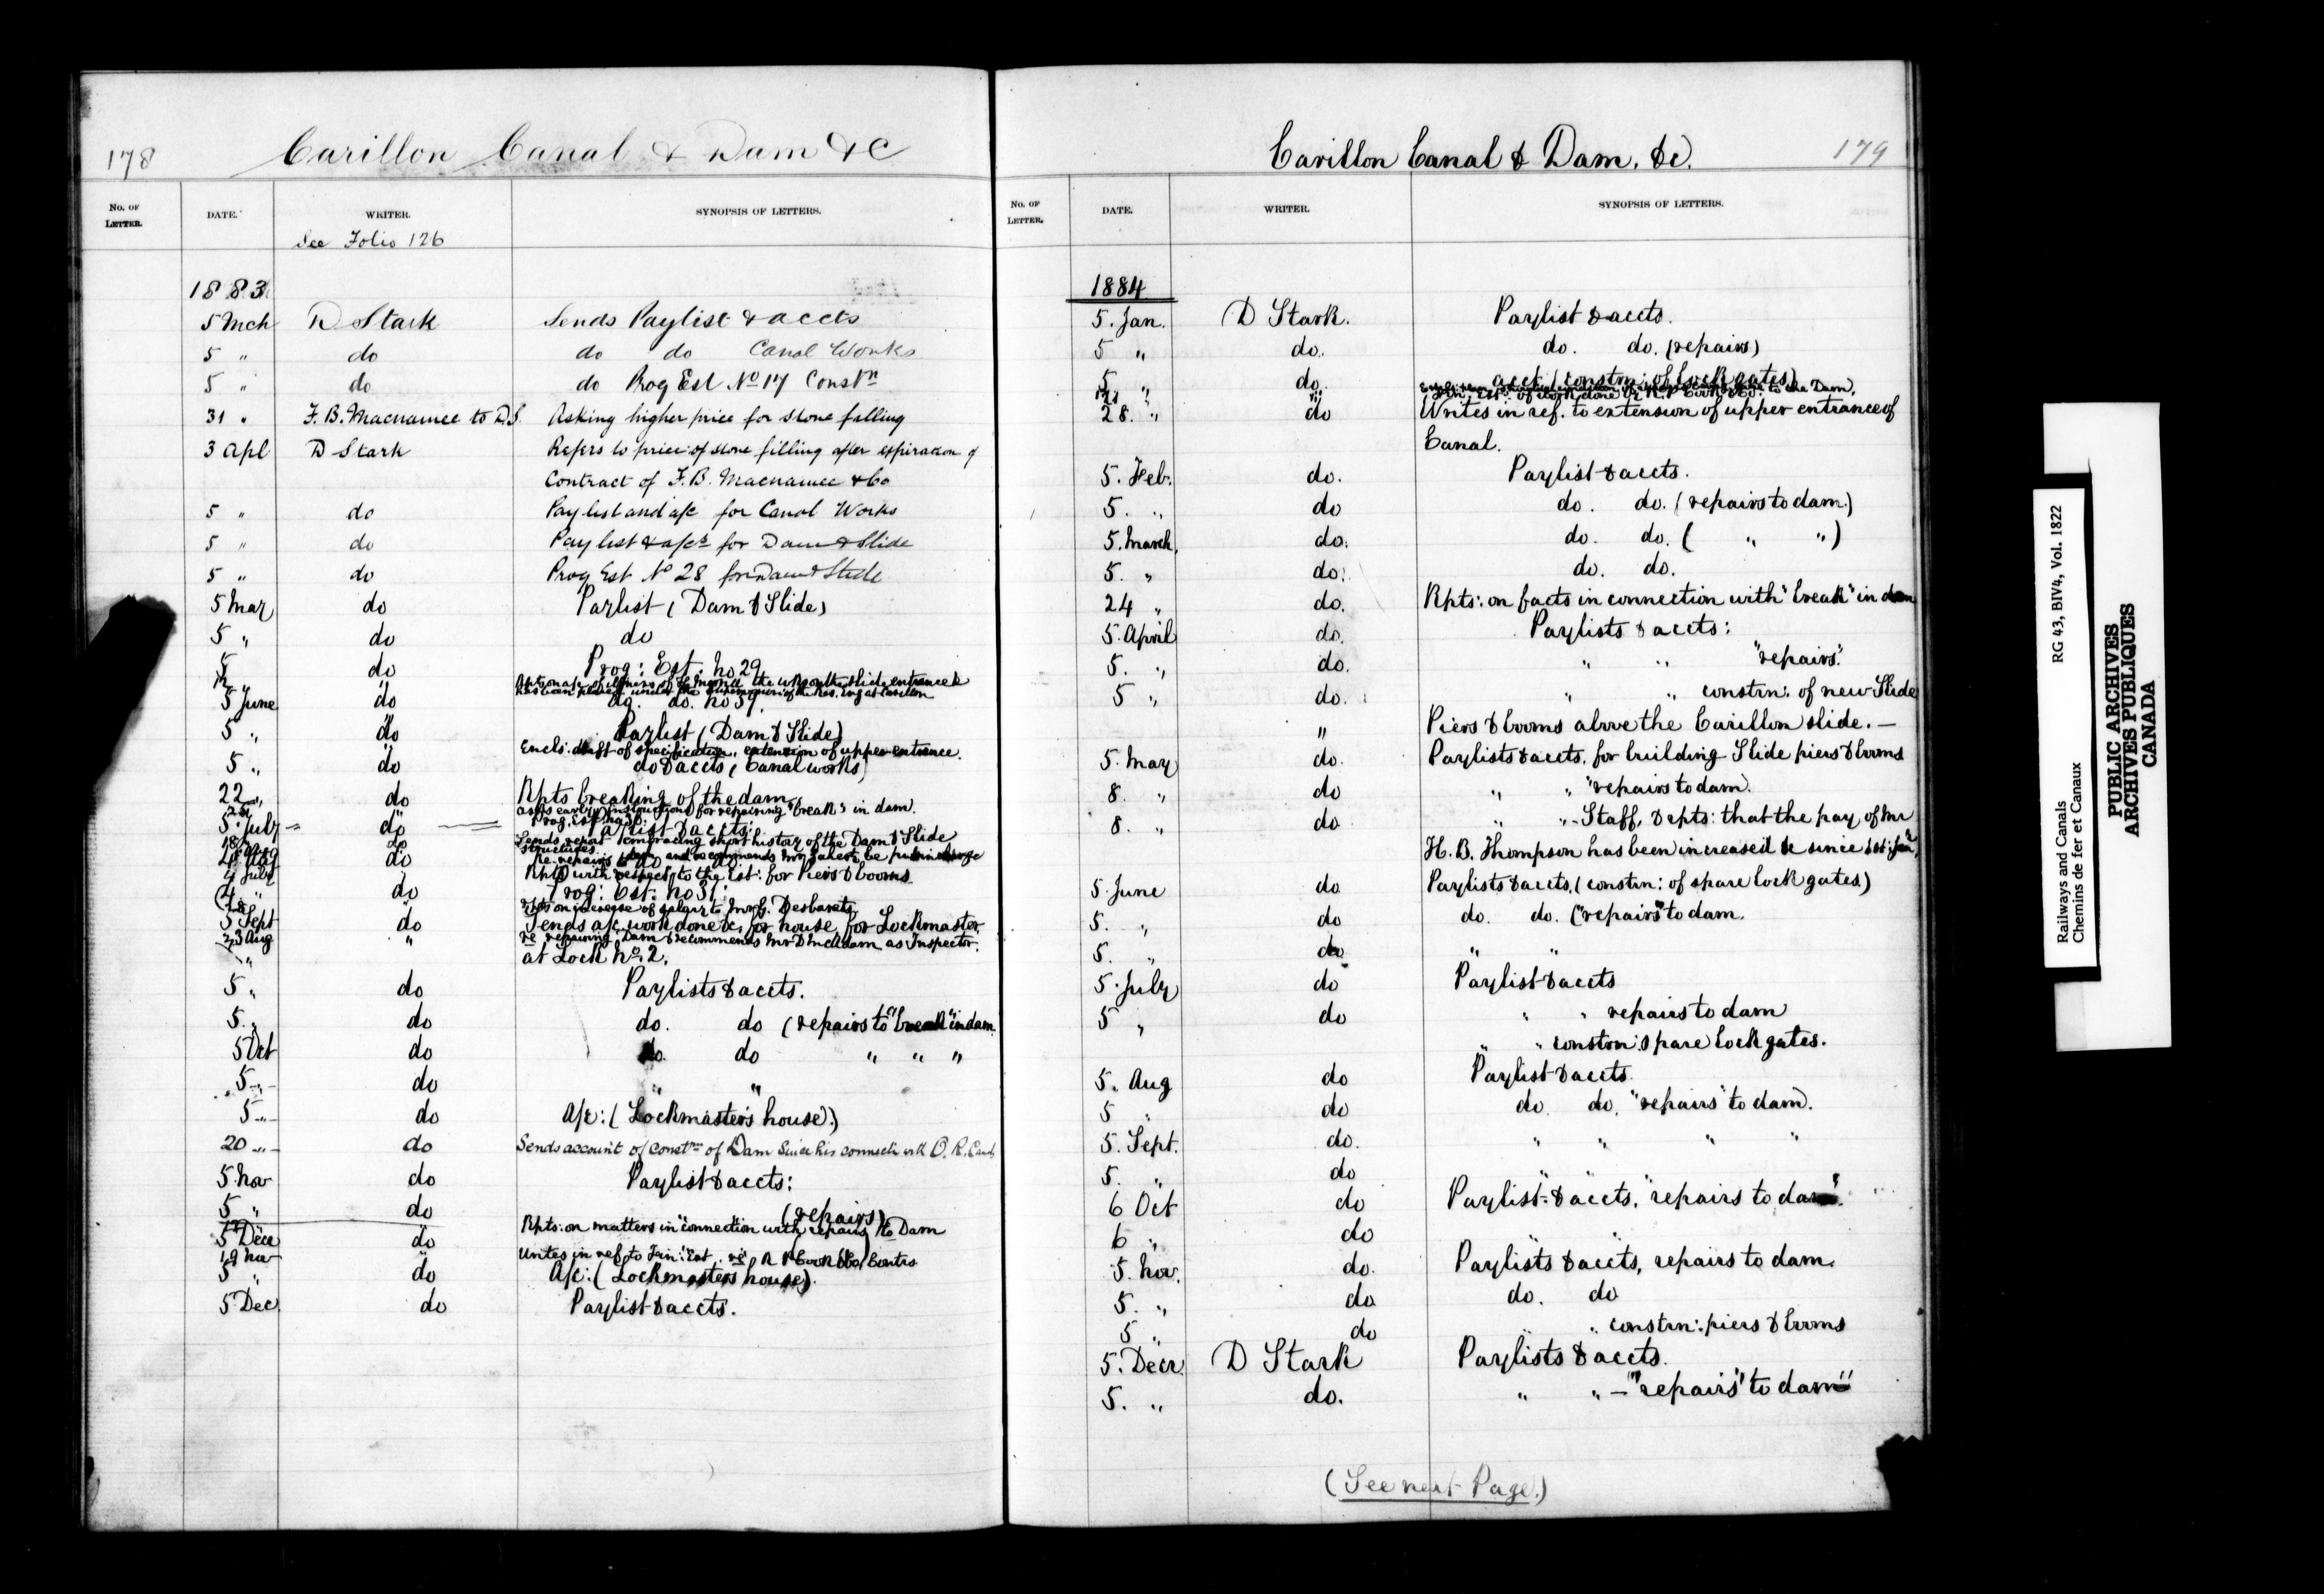 178
Carillon Canal & Dam & C
No. OF LETTER.
DATE.
WRITER.
SYNOPSIS OF LETTERS.
See Folio 126
1883
5 Mch D Stark Sends Paylist & accts
5 " do do do Canal Works
5 " do do Prog Est No 17 Constn
31 " F. B. Macnamee to D.S. Asking higher price for stone filling
3 Apl D Stark Refers to price of stone filling after expiration of
Contract of F. B. Macnamee & Co
5 " do Paylist and a/c for Canal Works
5 " do Paylist & a/cs for Dam & Slide
5 " do Prog Est No 28 for Dam & Slide
5 May do Paylist (Dam & Slide)
5 " do do
5 " do Prog: Est. No 29
has been placed under the
5 June do do. do. No 39.
5 " do Paylist (Dam & Slide)
Encls. draft of specification, extension of upper entrance.
5 " do do & accts (Canal works)
22 " do Rpts breaking of the dam
Asks early instructions for repairing "break" in dam.
Prog. Est. No 30.
5. July do Paylist & accts:
Sends report embracing short history of the Dam & Slide
structures.
do Re. repairs and recommends Mr
4 July Rpts with respect to the Est: for Piers & booms
4 " do Prog: Est: No 31.
Rpts on increase of salary to Mr G. Desbarats
5 Sept do Sends a/c work done &c, for house for Lockmaster
23 Aug " re repairing Dam & recommends Mr D McAdam as Inspector.
at Lock No. 2.
5 " do Paylists & accts.
5 " do do. do (repairs to "break" in dam.
5 Oct do do. do " " "
5 " do " "
5 " do A/c: (Lockmaster's house.)
20 " do Sends account of constrn of Dam since his connectn with O. R. Canals
5 Nov do Paylist & accts:
5 " do " " (repairs)
Rpts: on matters in connection with repairs to Dam
5 Dec do
19 Nov Writes in ref. to Est. re R P Cooke & Co, Contrs
5 " do A/c: (Lockmasters house).
5 Dec. do Paylist & accts.
Carillon Canal & Dam, &c.
179
No. OF LETTER.
DATE.
WRITER.
SYNOPSIS OF LETTERS.
1884
5. Jan. D Stark. Paylist & accts.
5 " do. do. do. (repairs)
5 " do. acct (constrn: of lock gates)
to the Dam,
Est. of work done by R. P Cooke & Co.
28. " do Writes in ref. to extension of upper entrance of
Canal.
5. Feb. do. Paylist & accts.
5. " do do. do. (repairs to dam.)
5. March. do. do. do. ( " " )
5. " do. do. do.
24 " do. Rpts: on facts in connection with "break" in dam
5. April do. Paylists & accts:
5. " do. " " "repairs".
5 " do. " " constrn: of new Slide
" Piers & booms above the Carillon slide. —
5. May do. Paylists & accts, for building Slide piers & booms
8. " do " " "repairs to dam.
8. " do " " - Staff, & rpts: that the pay of Mr
H. B. Thompson has been increased since 1st: Jan'
5. June do Paylists & accts, (constrn: of spare lock gates.)
5. " do do. do. ("repairs" to dam.
5. " do " "
5. July do Paylist & accts
5 " do " " repairs to dam
" " constrn: spare lock gates.
5. Aug do Paylist & accts.
5 " do do. do. "repairs" to dam.
5. Sept. do. " " " "
5. " do " "
6 Oct do Paylist & accts. "repairs to dam".
6 " do " "
5. Nov. do. Paylists & accts, repairs to dam.
5. " do do. do
5 " do " " constrn: piers & booms
5. Decr. D Stark Paylists & accts.
5. " do. " " — "repairs" to dam"
(See next Page.)
Railways and Canals
Chemins de fer et Canaux
RG 43, BIV4, Vol. 1822
PUBLIC ARCHIVES
ARCHIVES PUBLIQUES
CANADA